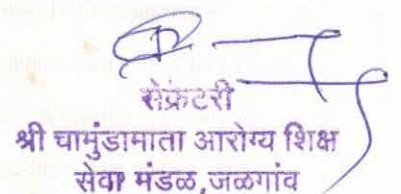 सेक्रेटरी
श्री चामुंडामाता आरोग्य शिक्ष
सेवा मंडळ,जळगांव